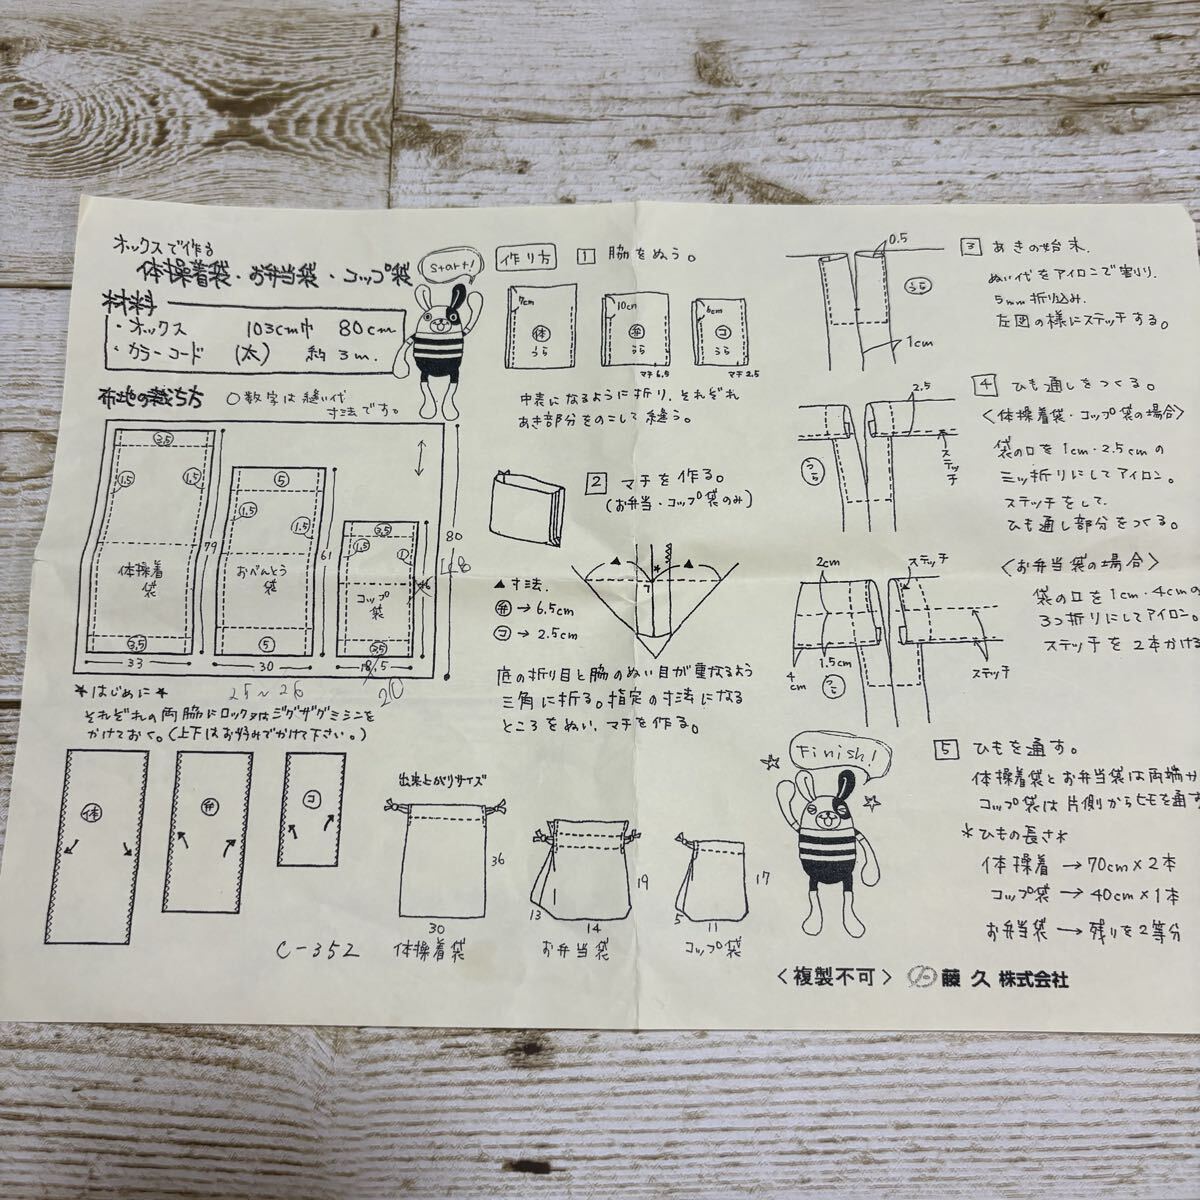 オックスで作る
体操着袋・お弁当袋・コップ袋
start!
材料
・オックス 103cm巾 80cm
・カラーコード (太) 約3m.
布地の裁ち方 ○数字は縫い代
寸法です。
3.5
1.5 1.5
体操着
袋
3.5
79
33
5
1.5 1.5
おべんとう
袋
5
61
30
25~26
3.5
1.5
コップ
袋
3.5
46
18.5
20
80
*はじめに*
それぞれの両脇にロック又はジグザグミシンを
かけておく。(上下はお好みでかけて下さい。)
体
弁
コ
出来上がりサイズ
36
30
体操着袋
19
13
14
お弁当袋
17
5
11
コップ袋
C-352
作り方
1 脇をぬう。
7cm
体
うら
10cm
弁
うら
マチ6.5
6cm
コ
うら
マチ2.5
中表になるように折り、それぞれ
あき部分をのこして縫う。
2 マチを作る。
(お弁当・コップ袋のみ)
▲寸法.
弁→6.5cm
コ→2.5cm
底の折り目と脇のぬい目が重なるよう
三角に折る。指定の寸法になる
ところをぬい、マチを作る。
3 あきの始末.
0.5
うら
1cm
ぬい代をアイロンで割り.
5mm折り込み.
左図の様にステッチする。
4 ひも通しをつくる。
<体操着袋・コップ袋の場合>
2.5
ステッチ
うら
袋の口を1cm・2.5cmの
三ッ折りにしてアイロン。
ステッチをして、
ひも通し部分をつくる。
<お弁当袋の場合>
2cm
ステッチ
1.5cm
4
cm
うら
ステッチ
袋の口を1cm・4cmの
3つ折りにしてアイロン。
ステッチを2本かける
Finish!
5 ひもを通す。
体操着袋とお弁当袋は両端か
コップ袋は片側からヒモを通す
*ひもの長さ*
体操着→70cm×2本
コップ袋→40cm×1本
お弁当袋→残りを2等分
<複製不可> 藤久株式会社